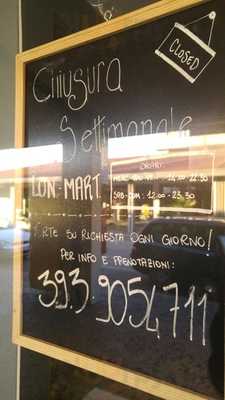 CLOSED
Chiusura
Settimanale
LUN - MART.
ORARI:
12.00 - 22.30
SAB - DOM : 12.00 - 23.30
SU RICHIESTA OGNI GIORNO!
PER INFO E PRENOTAZIONI:
393.9054711